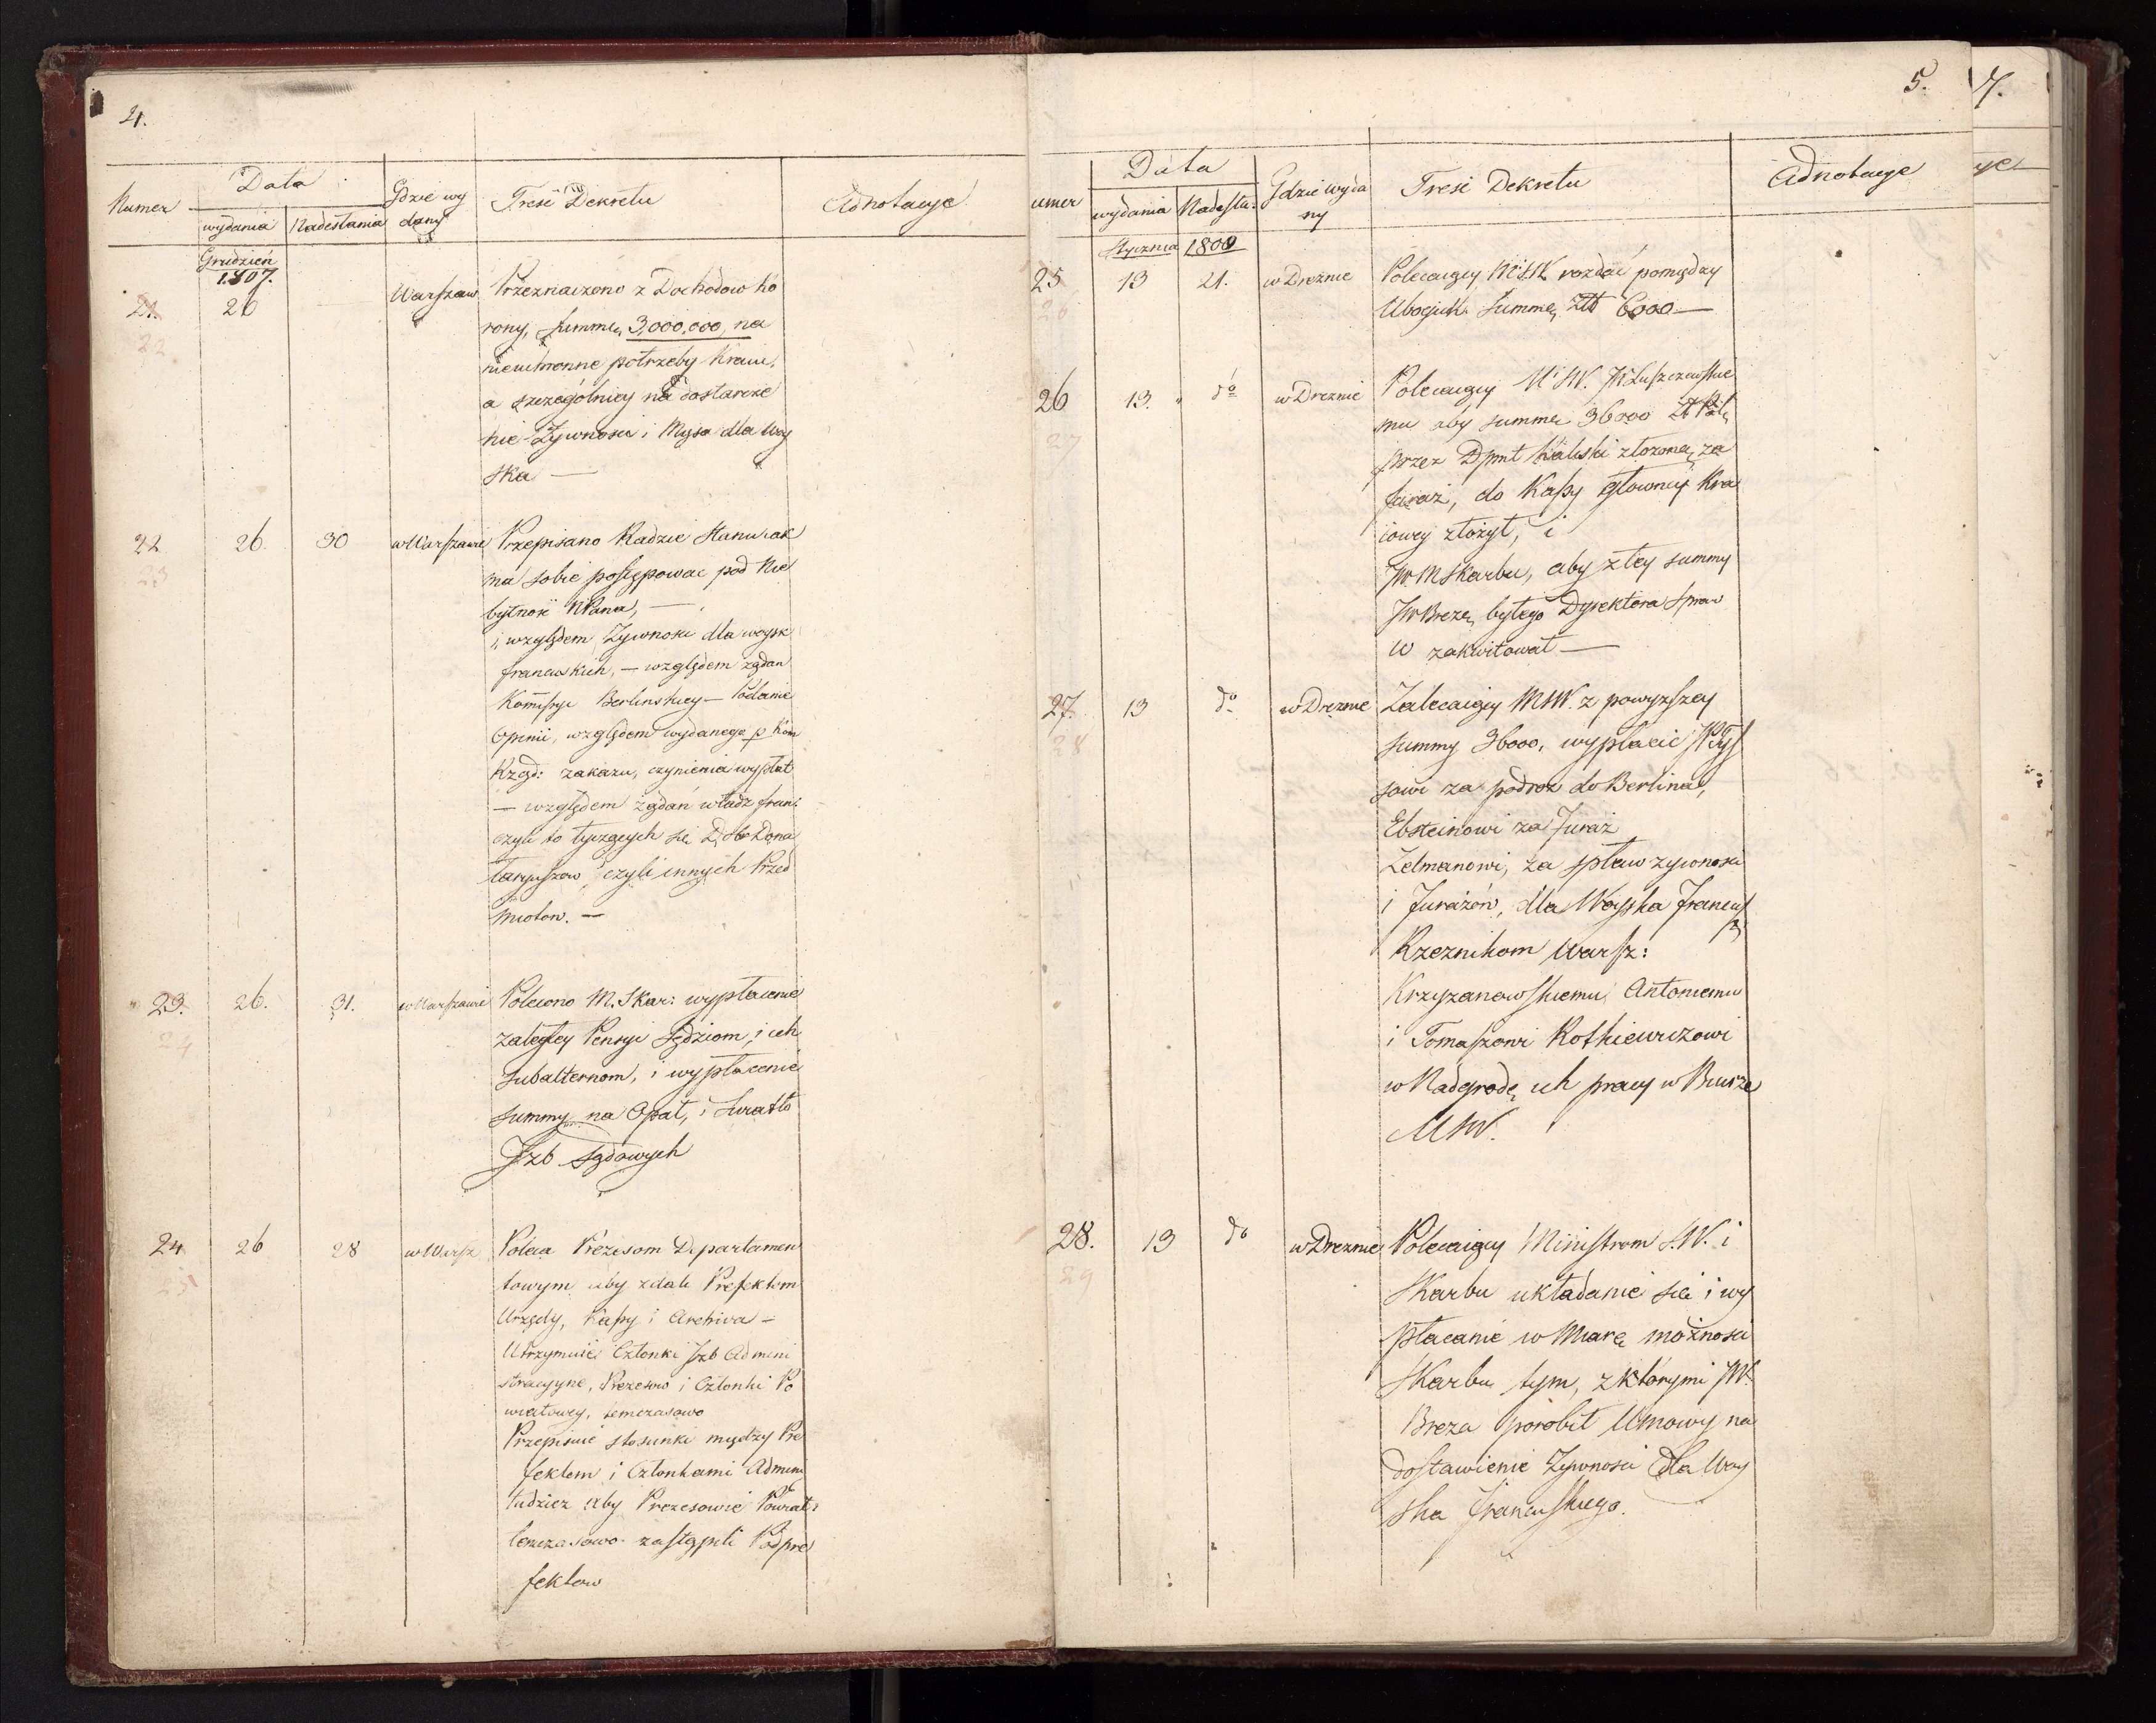 4.
Numer
Data
wydania
Nadesłania
Gdzie wy
dany
Treść Dekretu
Adnotacye
Grudzień
1807.
21.
22
26
Warszaw
Przeznaczono z Dochodow Ko
rony, summę 3,000,000, na
nieuchronne potrzeby Kraiu,
a szczególniey na dostarcze
nie Żywnosci i Mięsa dla Woy
ska —
22
23
26.
30
w Warszawie
Przepisano Radzie Stanu iak
ma sobie postępować pod Nie
bytność NPana, —
i, względem Zywnosci dla woysk
francuskich, — względem żądań
Kommissyi Berlinskiey — Podanie
Opinii, względem wydanego p Kom
Rząd: zakazu, czynienia wypłat
— względem żądań władz fran:
czyli to tyczących się Dobr Dona
taryuszow czyli innych Przed
miotow. —
23.
24
26.
31.
w Warszawie
Polecono M. Skar: wypłacenie
zaległey Pensyi Sędziom, i ich
Subalternom, i wypłacenie
summy na Opał, i Swiatło
Jzb Sądowych
24
25
26
28
w Warsz
Poleca Prezesom Departamen
towym aby zdali Prefektom
Urzędy, Kassy i Archiva —
Utrzymuie Członki Jzb Admini
stracyyne, Prezesow i Członki Po
wiatowey, temczasowo
Przepisuie stosunki między Pre
fektem i Członkami Admini
tudziez aby Prezesowie Powiat:
temczasowo zastąpili Podpre
fektow
5.
7.
umer
Data
wydania
Nadesła:
Gdzie wyda
ny
Treść Dekretu
Adnotacye
ye
Stycznia
1808
25
26
13
21.
w Dreznie
Polecaiący MSW rozdać pomiędzy
Ubogich Summę Złt 6000 —
26
27
13.
do
w Dreznie
Polecaiący MSW. JW Łuszczewskie
mu aby summę 36000
przez Dpmt Kaliski złozoną za
furaż, do Kassy głowney Kra
iowey złożył, i
JW. MSkarbu, aby z tey summy
JW Brezę byłego Dyrektora Spraw
W zakwitował —
27.
28
13
do
w Dreznie
Zalecaiący MSW. z powyzszey
summy 36000, wypłacić
sowi za podroz do Berlina,
Ebsteinowi za Furaż
Zelmanowi, za spław zywnosci
i Furażów, dla Woyska Francus
Rzeznikom Warsz:
Krzyzanowskiemu Antoniemu
i Tomaszowi Rothiewiczowi
w Nadgrodę ich pracy w Biurze
MSW.
28.
29
13
do
w Dreznie
Polecaiący Ministrom S.W. i
Skarbu układanie się i wy
płacanie w Miarę możnosci
Skarbu tym, z którymi JW.
Breza porobił Umowy na
dostawienie Zywnosci dla Woy
ska Francuskiego.